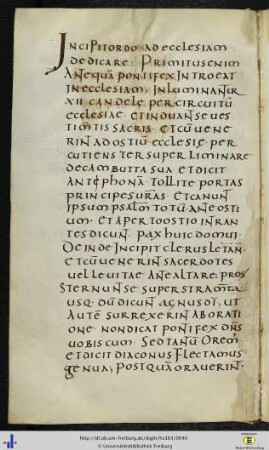 INCIPIT ORDO AD ECCLESIAM
DEDICARE. PRIMITUS ENIM
ANTEQUĀ PONTIFEX INTROEAT
IN ECCLESIAM, INLUMINANTUR
XII CANDELE PER CIRCUITŪ
ECCLESIAE ET INDUANT SE VES
TIMTIS SACRIS ET CŪ VENE
RINT AD OSTIŪ ECCLESIE PER
CUTIENS TER SUPERLIMINARE
DE CAMBUTTA SUA ET DICIT
ANTĒPHONĀ TOLLITE PORTAS
PRINCIPES URAS ET CANUNT
IPSUM PSALM TOTŪ ANTE OSTI
UM. ET APERTO OSTIO INTRAN
TES DICUNT. PAX HUIC DOMUI.
DEINDE INCIPIT CLERUS LETAN
ET CŪ VENERINT SACERDOTES
VEL LEVITAE ANTE ALTARE: PROS
TERNUNT SE SUPER STRAMTA
USQ. DŪ DICUNT AGNUS DĪ, UT
AUTĒ SURREXERINT AB ORATI
ONE NON DICAT PONTIFEX DŇS
VOBISCUM. SED TANTŪ OREM
ET DICIT DIACONUS FLECTAMUS
GENUA, POSTQUĀ ORAVERINT
http://dl.ub.uni-freiburg.de/diglit/hs363/0040
© Universitätsbibliothek Freiburg